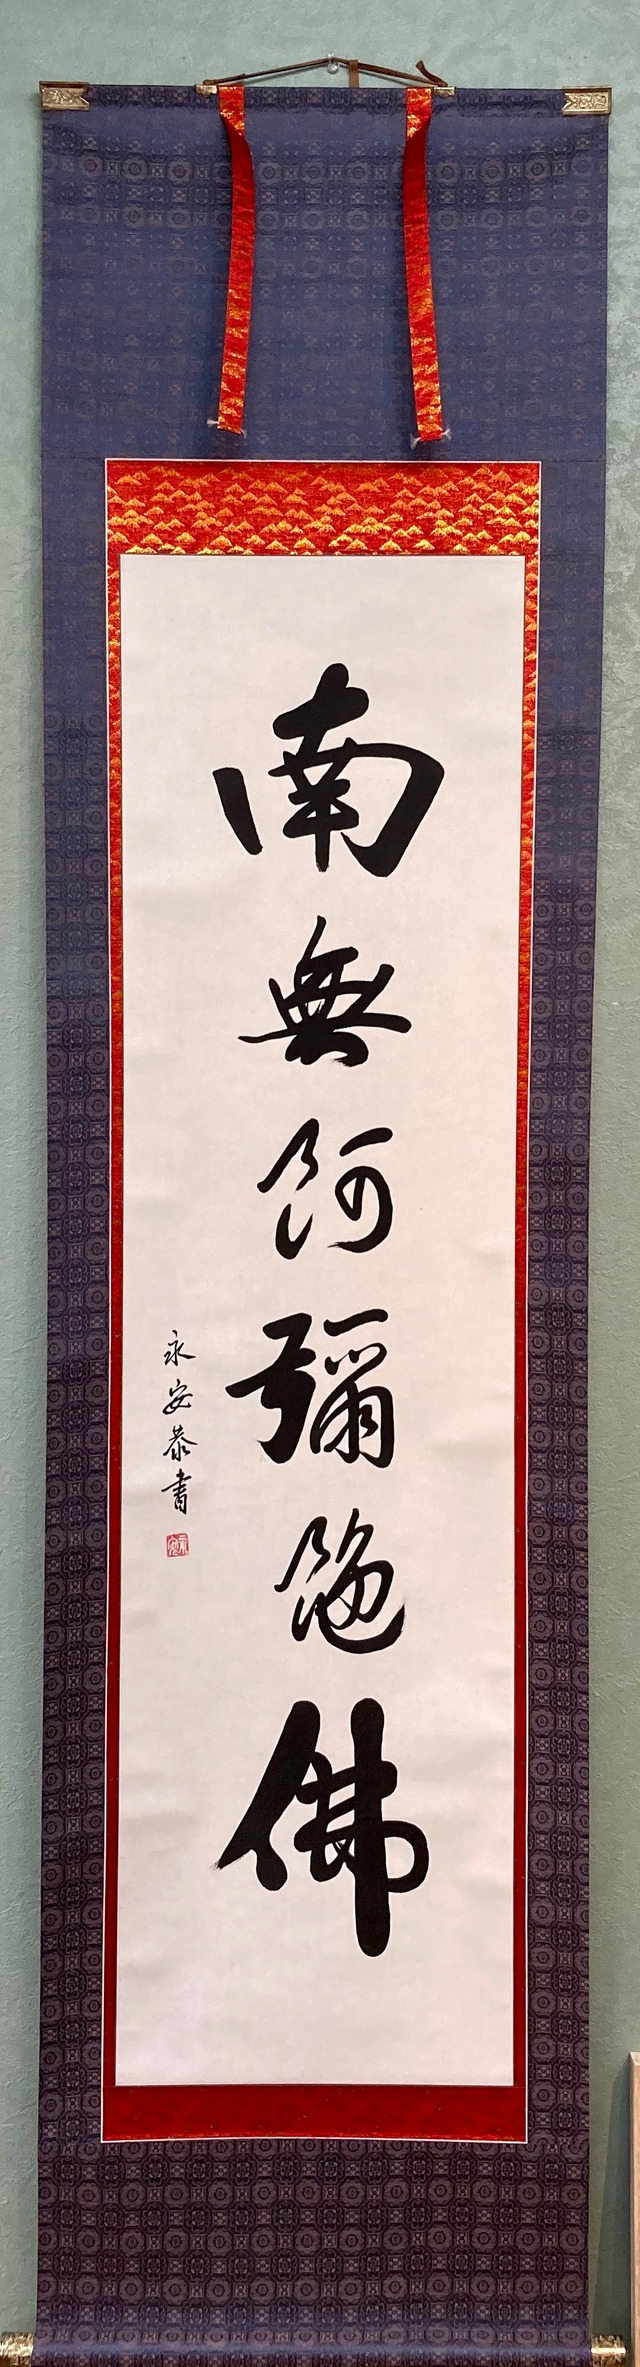 南無阿彌陀佛
永安恭書